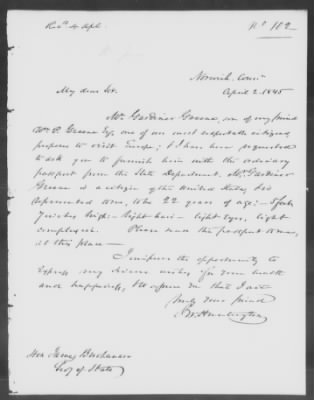 Rec'd 4 Apl.
No 102
Norwich, Conn
April 2. 1845
My dear Sir,
Mr. Gardiner Greene, son of my friend
Wm. P. Greene Esq, one of our most respectable citizens,
proposes to visit Europe; & I have been requested
to ask you to furnish him with the ordinary
passport from the State Department. Mr. Gardiner
Greene is a citizen of the United States,
22 years of age; 5 feet
7 inches high - light hair - light eyes, light
complexion. Please send the passport to me,
at this place -
I improve the opportunity to
express my sincere wishes for your health
and happiness, & to assure you that I am
truly your friend
J. W. Huntington
Hon James Buchanan
Secy of State